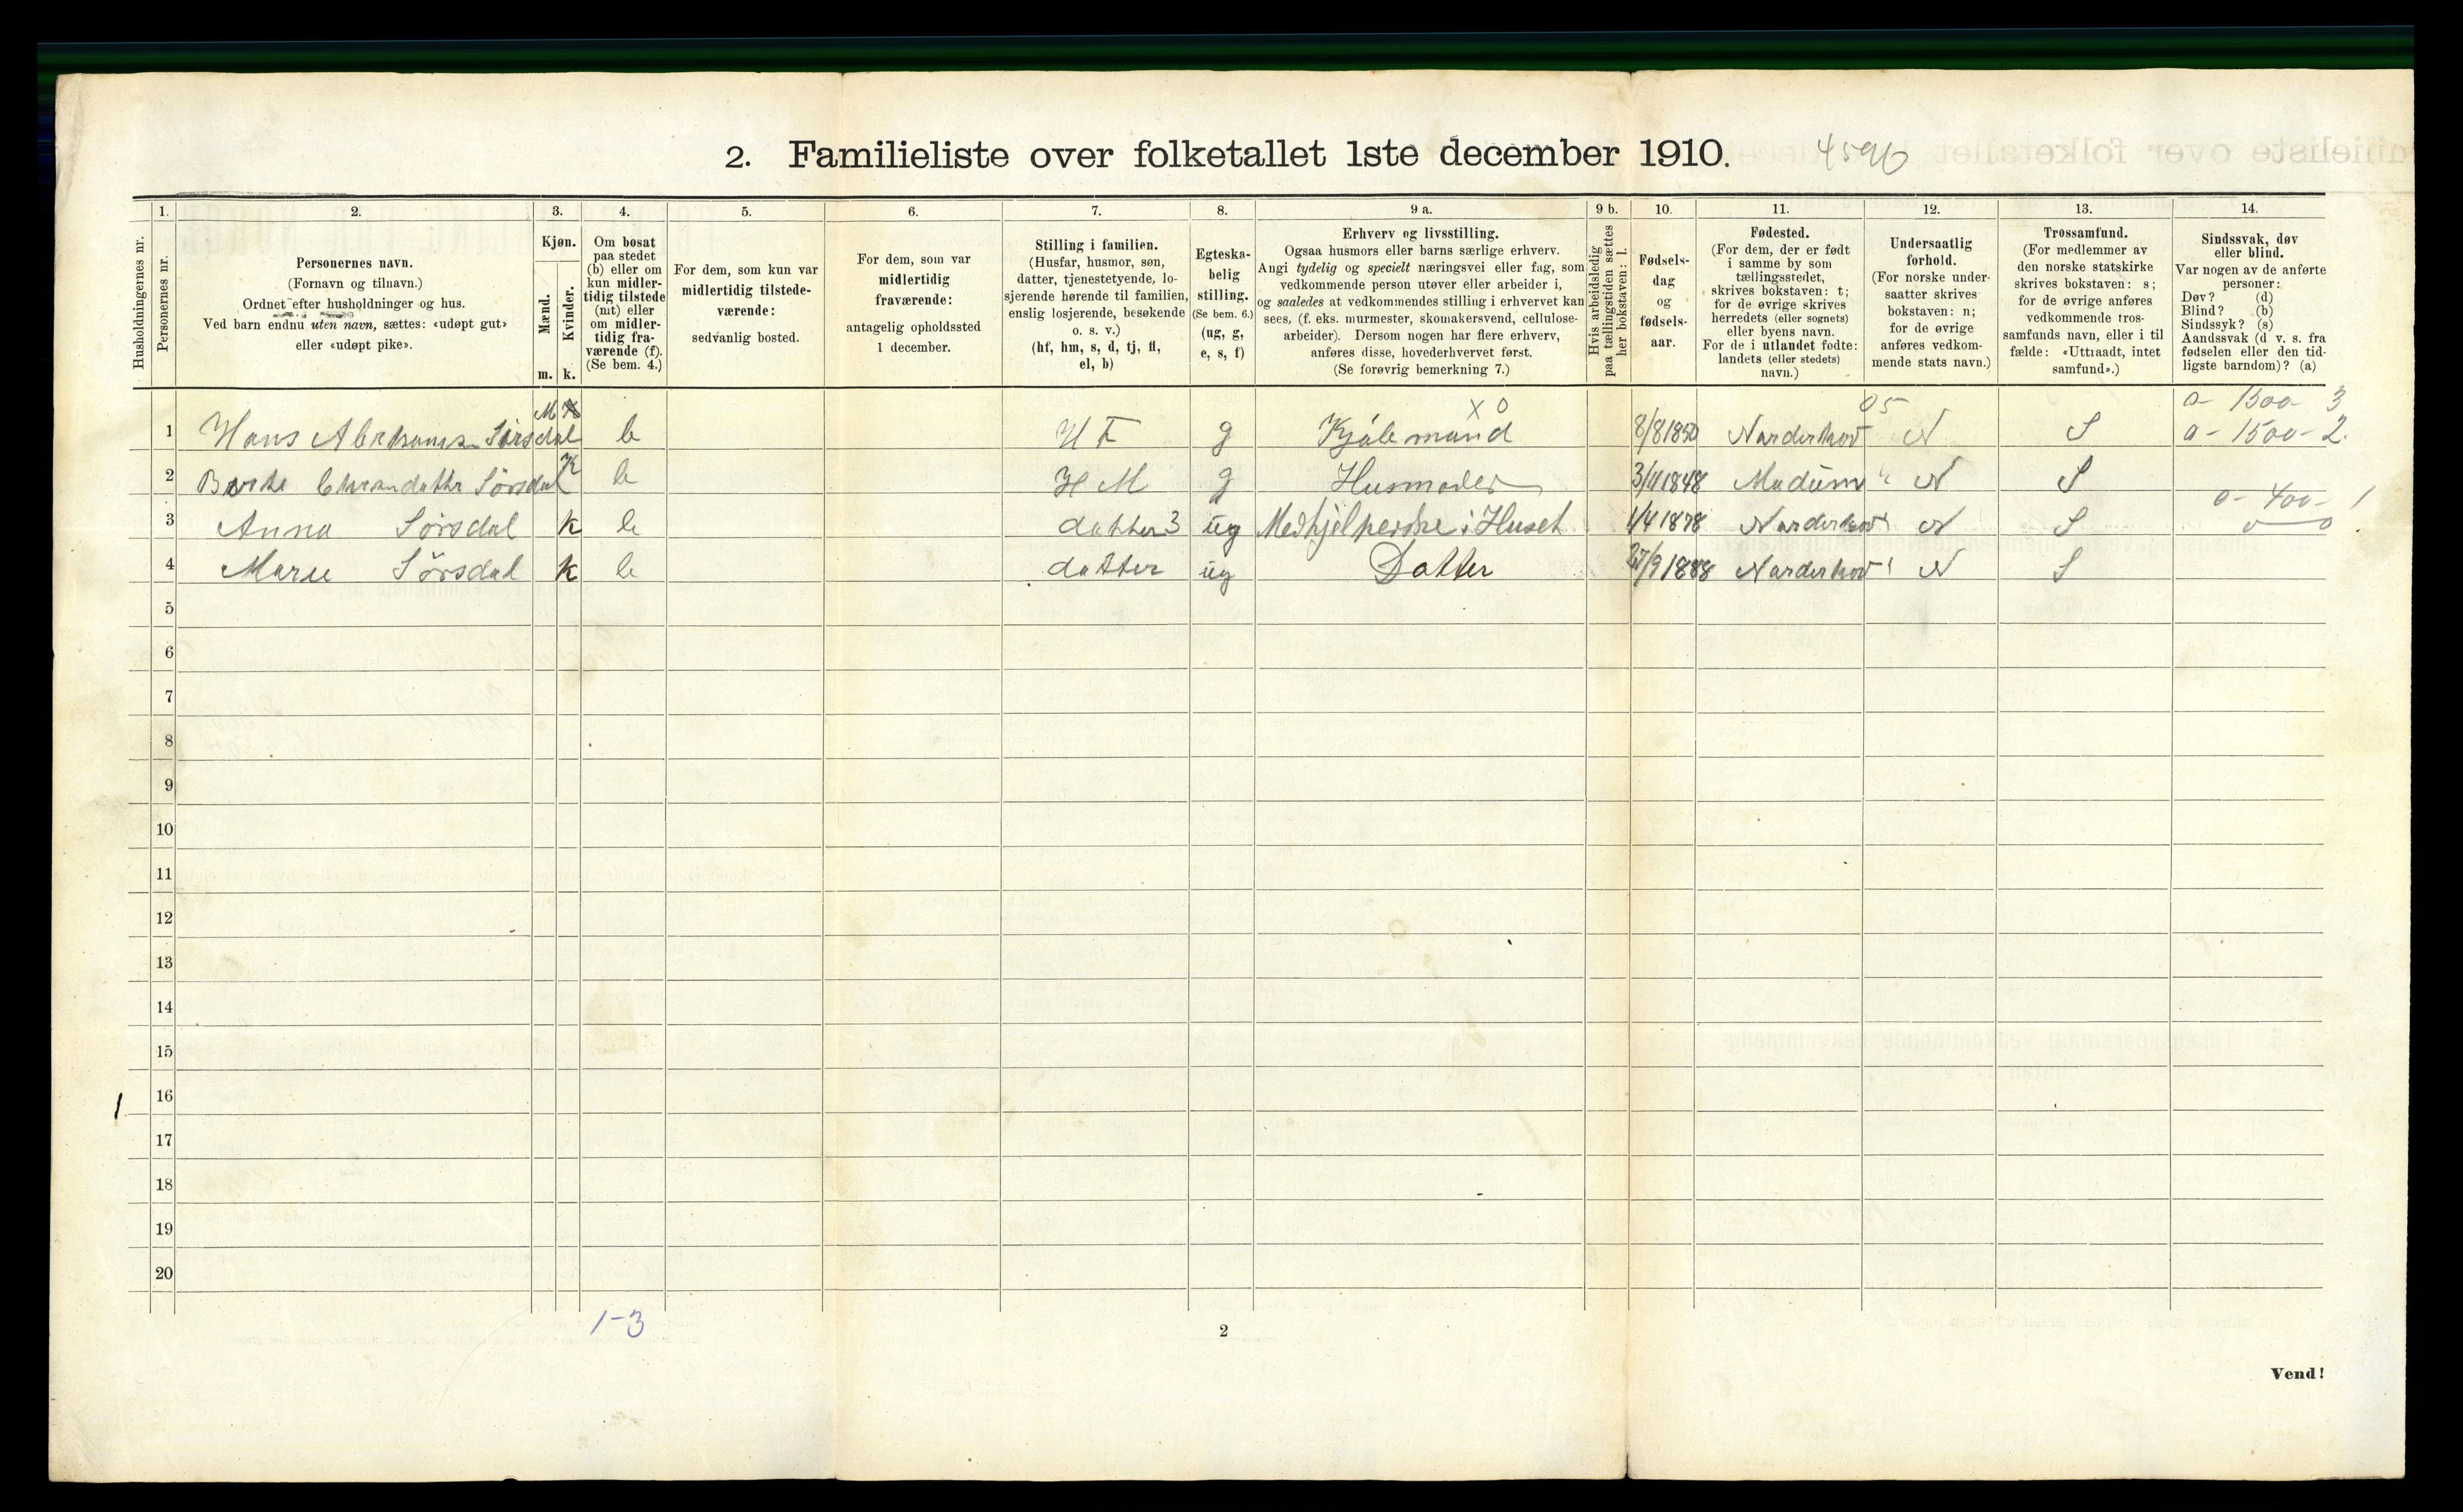 2. Familieliste over folketallet 1ste december 1910.
Husholdningernes nr.
1.
Personernes nr.
2.
Personernes navn.
(Fornavn og tilnavn.)
Ordnet efter husholdninger og hus.
Ved barn endnu uten navn, sættes: «udøpt gut»
eller «udøpt pike».
3.
Kjøn.
Mænd.
Kvinder.
m. k.
4.
Om bosat
paa stedet
(b) eller om
kun midler-
tidig tilstede
(mt) eller
om midler-
tidig fra-
værende (f).
(Se bem. 4.)
5.
For dem, som kun var
midlertidig tilstede-
værende:
sedvanlig bosted.
6.
For dem, som var
midlertidig
fraværende:
antagelig opholdssted
1 december.
7.
Stilling i familien.
(Husfar, husmor, søn,
datter, tjenestetyende, lo-
sjerende hørende til familien,
enslig losjerende, besøkende
o. s. v.)
(hf, hm, s, d, tj, fl,
el, b)
8.
Egteska-
belig
stilling.
(Se bem. 6.)
(ug, g,
e, s, f)
9 a.
Erhverv og livsstilling.
Ogsaa husmors eller barns særlige erhverv.
Angi tydelig og specielt næringsvei eller fag, som
vedkommende person utøver eller arbeider i,
og saaledes at vedkommendes stilling i erhvervet kan
sees, (f. eks. murmester, skomakersvend, cellulose-
arbeider). Dersom nogen har flere erhverv,
anføres disse, hovederhvervet først.
(Se forøvrig bemerkning 7.)
9 b.
Hvis arbeidsledig
paa tællingstiden sættes
her bokstaven: l.
10.
Fødsels-
dag
og
fødsels-
aar.
11.
Fødested.
(For dem, der er født
i samme by som
tællingsstedet,
skrives bokstaven: t;
for de øvrige skrives
herredets (eller sognets)
eller byens navn.
For de i utlandet fødte:
landets (eller stedets)
navn.)
12.
Undersaatlig
forhold.
(For norske under-
saatter skrives
bokstaven: n;
for de øvrige
anføres vedkom-
mende stats navn.)
13.
Trossamfund.
(For medlemmer av
den norske statskirke
skrives bokstaven: s;
for de øvrige anføres
vedkommende tros-
samfunds navn, eller i til
fælde: «Uttraadt, intet
samfund».)
14.
Sindssvak, døv
eller blind.
Var nogen av de anførte
personer:
Døv? (d)
Blind? (b)
Sindssyk? (s)
Aandssvak (d v. s. fra
fødselen eller den tid-
ligste barndom)? (a)
M x 0 05 0- 1500- 3
1 Hans Sørsdal b H F g 8/8 1850 Narderhov N S 0- 1500- 2.
2 Sørsdal K b H M g Husmoder 3/11 1848 Madum N S
0- 400- 1
3 Anna Sørsdal k b datter 3 ug Medhjelperske i Huset 1/4 1878 Narderhov N S
4 Marie Sørsdal k b datter ug Datter 27/9 1888 Narderhov N S
5
6
7
8
9
10
11
12
13
14
15
16
1
17
18
19
20
1-3
2
Vend!